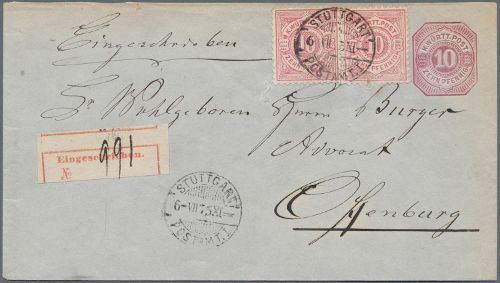 Eingeschrieben
STUTTGART
6 VII
POSTAMT. I.
K. WÜRTT. POST
10
ZEHN PFENNIG
K. WÜRTT. POST
10
ZEHN PFENNIG
Sr Wohlgeboren Herrn Burger
Advocat
Offenburg
Eingeschrieben.
No 991
STUTTGART
6-VII
POSTAMT. I.